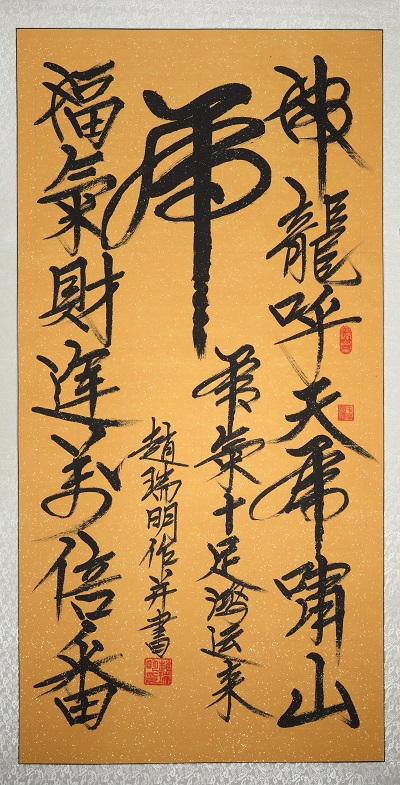 神龍呼天虎嘯山
虎
虎氣十足鴻运来
福氣財運万倍番
趙瑞明作并書